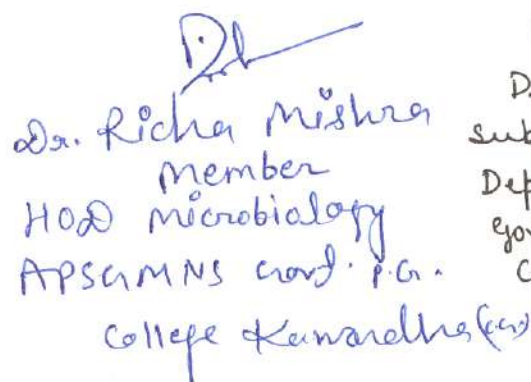 Dr. Richa Mishra
Member
HOD Microbiology
APSGMNS Govt. P.G.
College Kawardha (C.G)
D
Sub
Dep
Gov
C